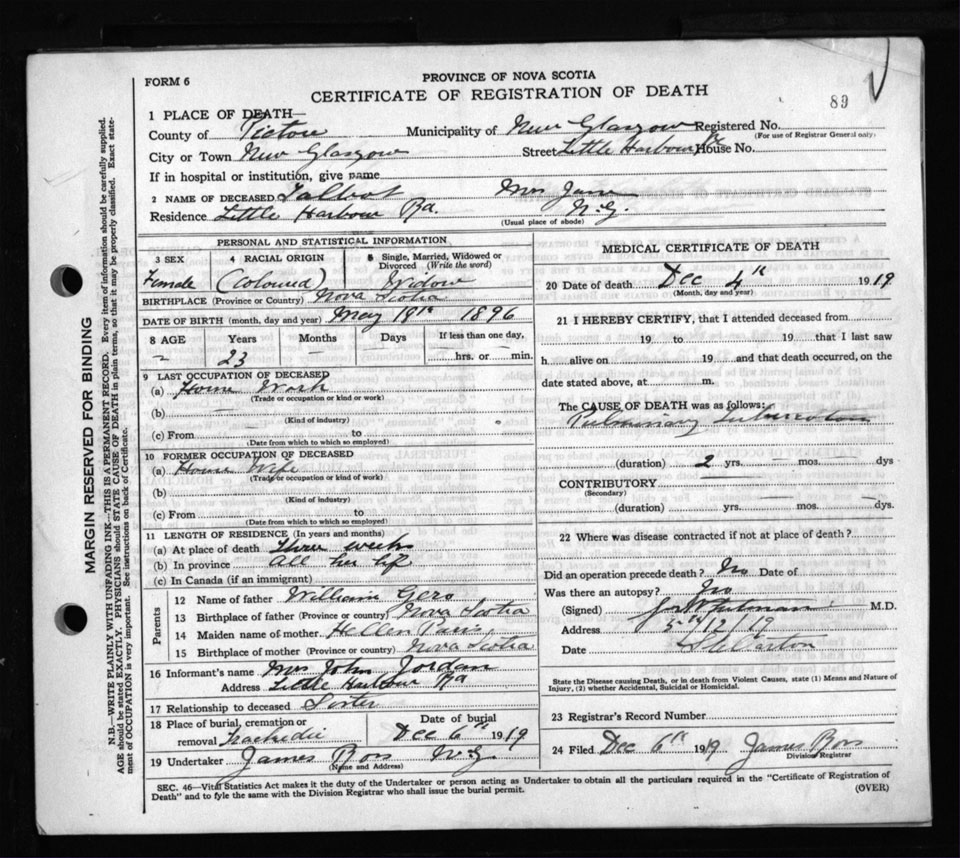 FORM 6
PROVINCE OF NOVA SCOTIA
CERTIFICATE OF REGISTRATION OF DEATH
89
1 PLACE OF DEATH—
County of Pictou Municipality of New Glasgow Registered No.
(For use of Registrar General only)
City or Town New Glasgow Street Little Harbour Rd House No.
If in hospital or institution, give name
2 NAME OF DECEASED Talbot Mrs Jane
Residence Little Harbour Rd. N.G.
(Usual place of abode)
PERSONAL AND STATISTICAL INFORMATION
3 SEX 4 RACIAL ORIGIN 5 Single, Married, Widowed or Divorced (Write the word)
Female (Coloured) Widow
BIRTHPLACE (Province or Country) Nova Scotia
DATE OF BIRTH (month, day and year) May 19th 1896
8 AGE Years Months Days If less than one day,
23 hrs. or min.
9 LAST OCCUPATION OF DECEASED
(a) Home Work
(Trade or occupation or kind or work)
(b)
(Kind of industry)
(c) From to
(Date from which to which so employed)
10 FORMER OCCUPATION OF DECEASED
(a) House Wife
(Trade or occupation or kind of work)
(b)
(Kind of industry)
(c) From to
(Date from which to which so employed)
11 LENGTH OF RESIDENCE (In years and months)
(a) At place of death three weeks
(b) In province all her life
(c) In Canada (if an immigrant)
Parents
12 Name of father William Gero
13 Birthplace of father (Province or country) Nova Scotia
14 Maiden name of mother Hellen Paris
15 Birthplace of mother (Province or country) Nova Scotia
16 Informant's name Mrs John Jordan
Address Little Harbour Rd
17 Relationship to deceased Sister
18 Place of burial, cremation or removal Tracadie Date of burial Dec 6th 1919
19 Undertaker James Ross N.G.
(Name and Address)
MEDICAL CERTIFICATE OF DEATH
20 Date of death Dec 4th 1919
(Month, day and year)
21 I HEREBY CERTIFY, that I attended deceased from
19 to 19 that I last saw
h alive on 19 and that death occurred, on the
date stated above, at m.
The CAUSE OF DEATH was as follows:
Pulmonary tuberculosis
(duration) 2 yrs. mos. dys
CONTRIBUTORY
(Secondary)
(duration) yrs. mos. dys.
22 Where was disease contracted if not at place of death?
Did an operation precede death? No Date of
Was there an autopsy? No
(Signed) M.D.
Address 5th/12/19
Date Stellarton
State the Disease causing Death, or in death from Violent Causes, state (1) Means and Nature of
Injury, (2) whether Accidental, Suicidal or Homicidal.
23 Registrar's Record Number
24 Filed Dec 6th 1919 James Ross
Division Registrar
SEC. 46—Vital Statistics Act makes it the duty of the Undertaker or person acting as Undertaker to obtain all the particulars required in the "Certificate of Registration of
Death" and to fyle the same with the Division Registrar who shall issue the burial permit.
(OVER)
MARGIN RESERVED FOR BINDING
N.B.—WRITE PLAINLY WITH UNFADING INK—THIS IS A PERMANENT RECORD. Every item of information should be carefully supplied.
AGE should be stated EXACTLY. PHYSICIANS should STATE CAUSE OF DEATH in plain terms, so that it may be properly classified. Exact state-
ment of OCCUPATION is very important. See instructions on back of Certificate.